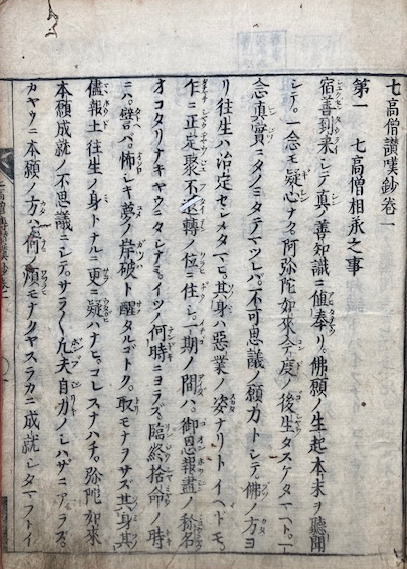 七高僧讃嘆鈔卷一
第一　七高僧相承之事
宿善到来シテ真ノ善知識ニ値奉リ。佛願ノ生起本末ヲ聽聞
シテ。一念モ疑心ナク。阿弥陀如來今度ノ後生タスケタマヘト。一
念真實ニタノミタテマツレバ。不可思議ノ願力トシテ。佛ノ方ヨ
リ往生ハ治定セシメタマヒ。其身ハ惡業ノ姿ナリトイヘドモ。
乍ニ正定聚不退轉ノ位ニ住シ。一期ノ間ハ。御恩報盡ノ称名
オコタリナキヤウニタシナミ。イツノ何時ニヨラズ。臨終捨命ノ時
ニハ。譬ハ。怖シキ夢ノ岸破ト醒タルゴトク。取モナヲサズ其身其
儘報土往生ノ身トナルニ更ニ疑ハナヒ。コレスナハチ。弥陀如來
本願成就ノ不思議ニシテ。サラ〱凡夫自力ノシハザニアラズ。
カヤウニ本願ノ方ハ何ノ煩モナクヤスラカニ成就シタマフトイ